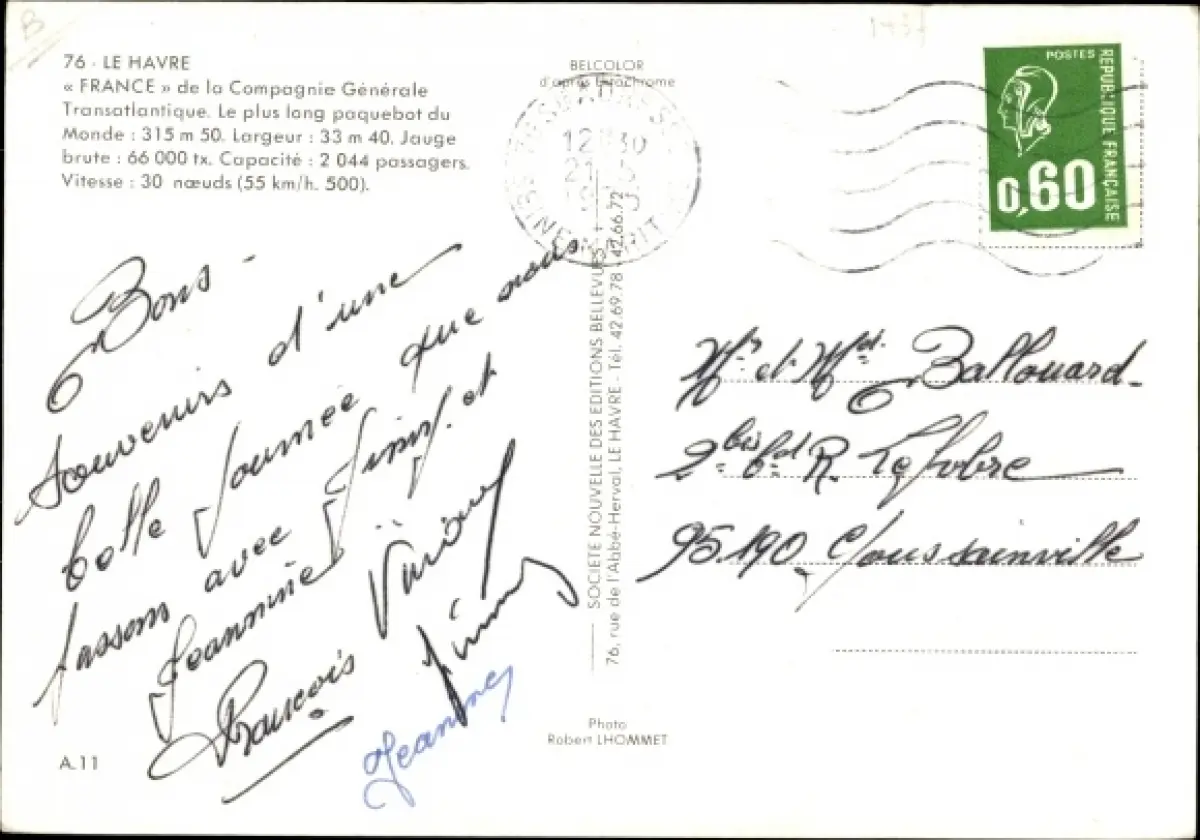 76 - LE HAVRE
« FRANCE » de la Compagnie Générale
Transatlantique. Le plus long paquebot du
Monde : 315 m 50. Largeur : 33 m 40. Jauge
brute : 66 000 tx. Capacité : 2 044 passagers.
Vitesse : 30 nœuds (55 km/h. 500).
Bons
souvenirs d'une
belle journée que nous
passons avec Jimmy et
Jeannine
François
Jeannine
A.11
BELCOLOR
d'après Ektachrome
12 30
SOCIETE NOUVELLE DES EDITIONS BELLEVUES
76, rue de l'Abbé-Herval, LE HAVRE - Tél. 42.69.78 - 42.66.72
Photo
Robert LHOMMET
POSTES
REPUBLIQUE FRANÇAISE
0,60
Mr et Mme Ballouard
2 bis bd R. Lefebre
95.190 Goussainville